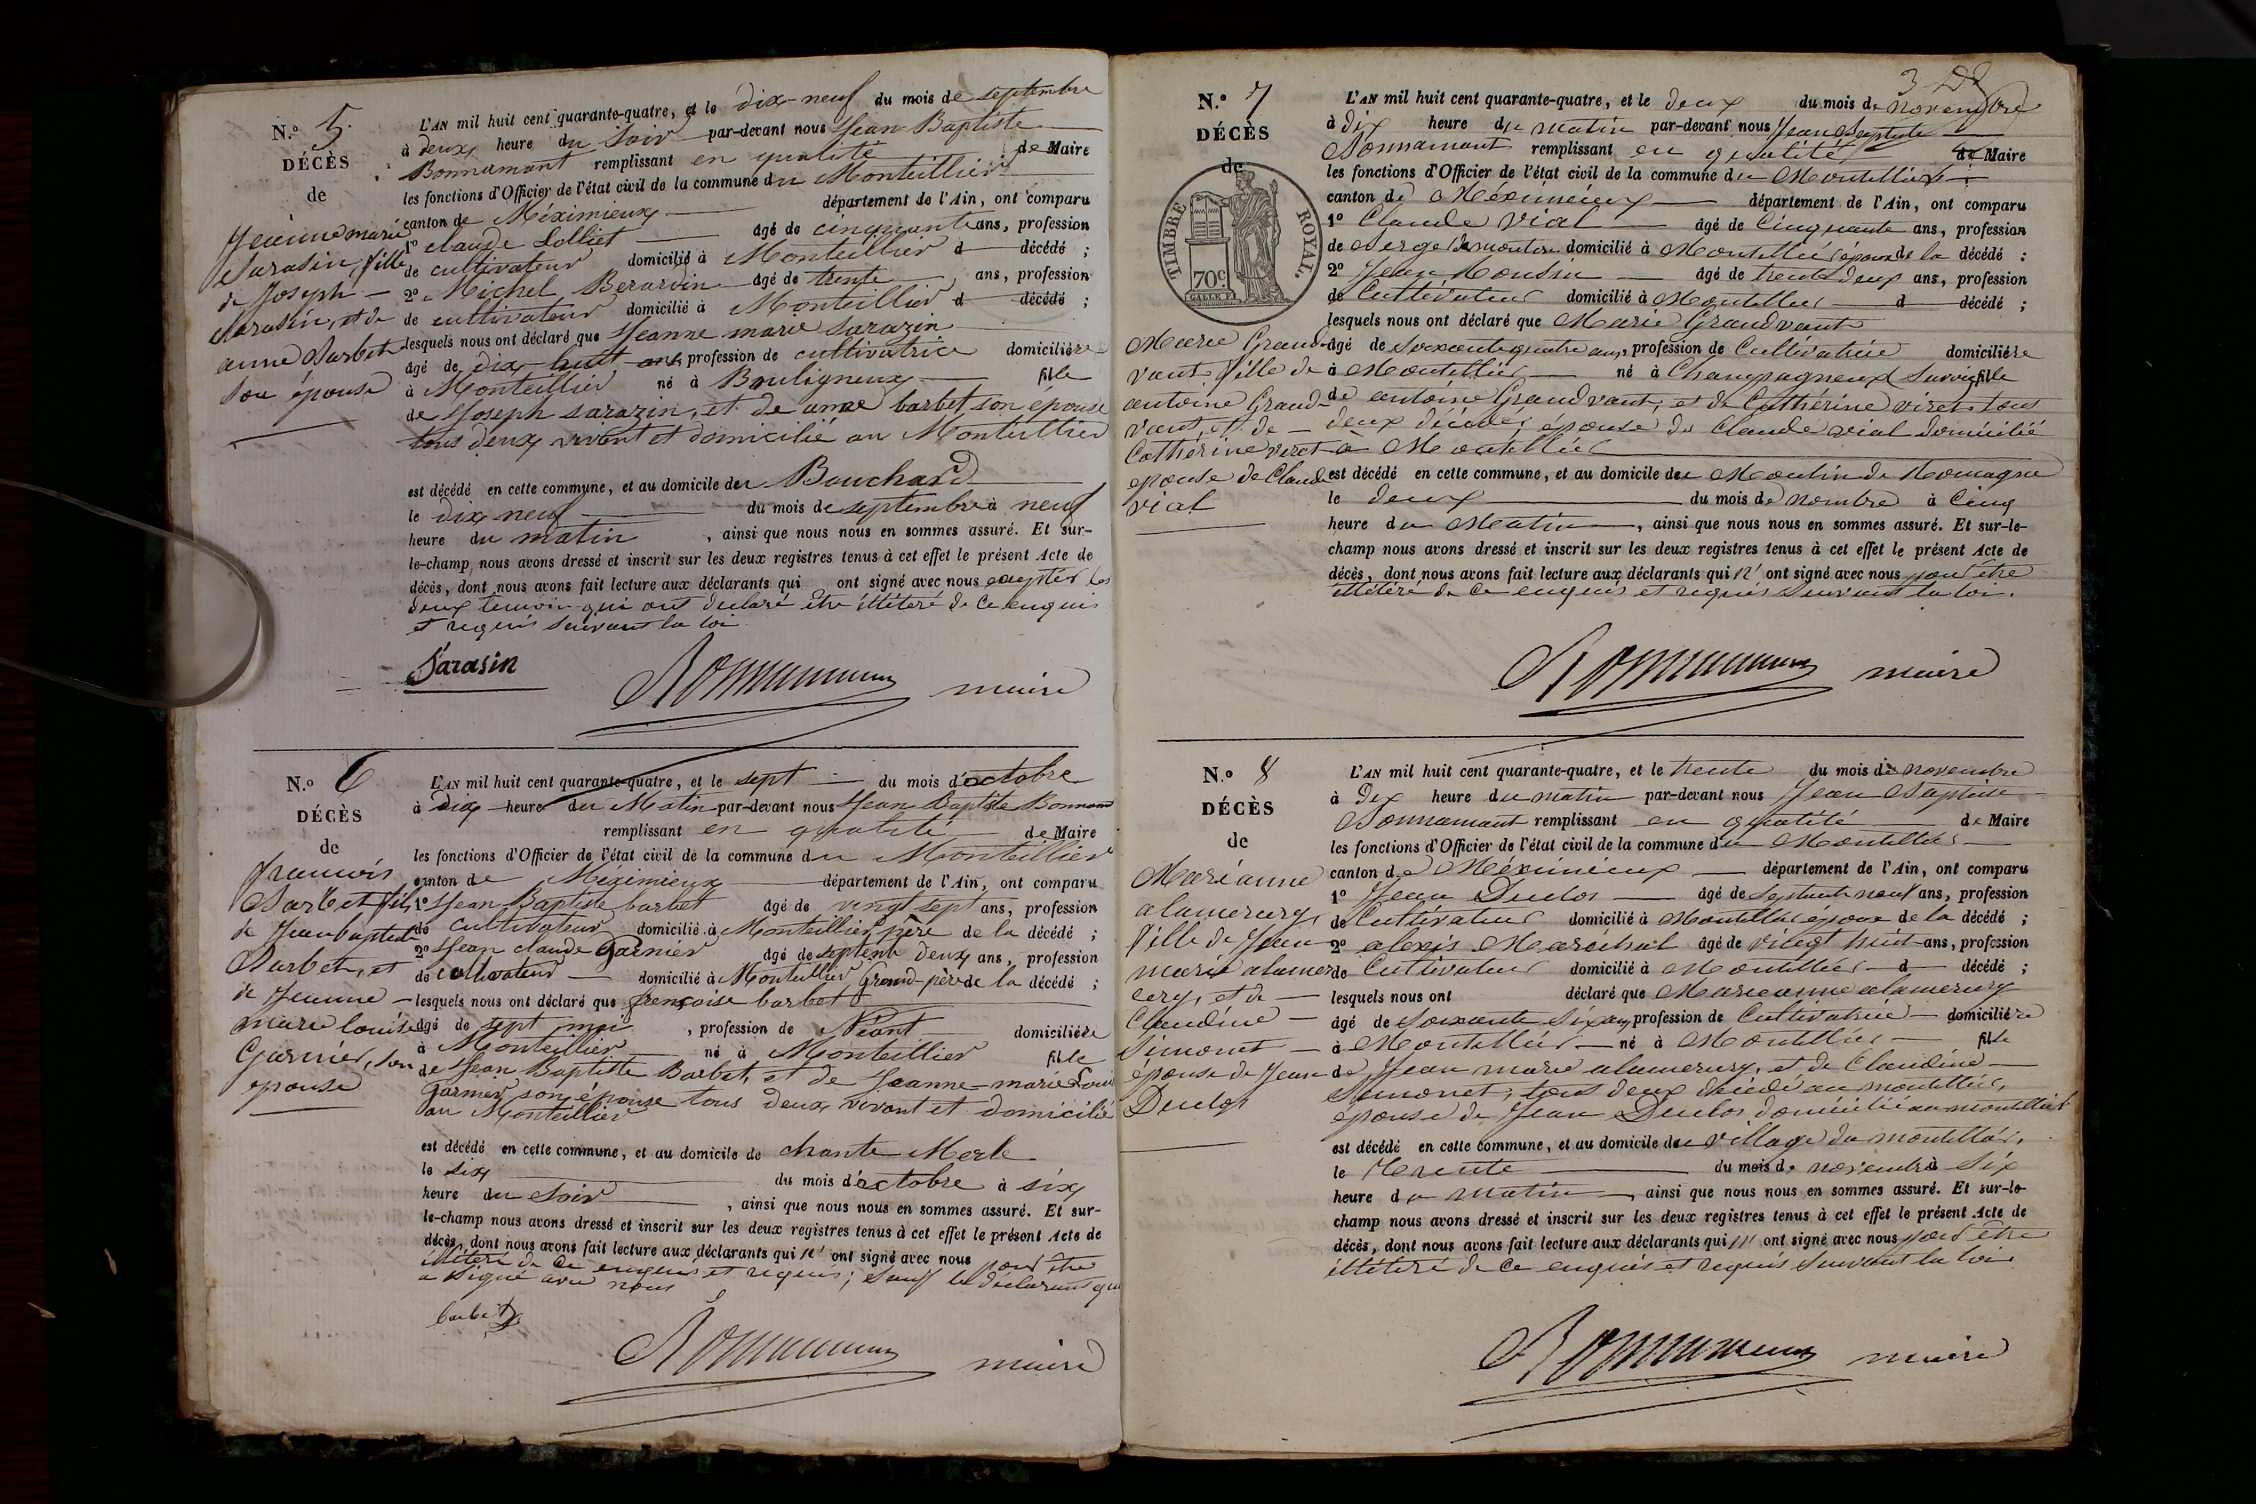 N.º 5.
DÉCÈS
de
Jeanne marie
Sarasin, fille
de Joseph
Sarasin, et de
anne Barbet
son épouse
L'AN mil huit cent quarante-quatre, et le dix-neuf du mois de septembre
à deux heure du soir par-devant nous Jean Baptiste
Bonnamant remplissant en qualité de Maire
les fonctions d'Officier de l'état civil de la commune du Montellier
canton de Méximieux département de l'Ain, ont comparu
1º claude Lolliet âgé de cinquante ans, profession
de cultivateur domicilié à Montellier d décédé ;
2º Michel Berardin âgé de trente ans, profession
de cultivateur domicilié à Montellier d décédé ;
lesquels nous ont déclaré que Jeanne marie Sarazin
âgé de dix huit ans, profession de cultivatrice domiciliére
à Montellier né à Bouligneux fille
de Joseph sarazin, et de anne barbet, son épouse
tous deux vivant et domicilié au Montellier
est décédé en cette commune, et au domicile du Bouchard
le dix neuf du mois de septembre à neuf
heure du matin, ainsi que nous nous en sommes assuré. Et sur-
le-champ, nous avons dressé et inscrit sur les deux registres tenus à cet effet le présent Acte de
décès, dont nous avons fait lecture aux déclarants qui ont signé avec nous les
deux temoin qui ont declaré être illétéré de ce enquis
et requis suivant la loi
Sarasin
Bonnamant maire
N.º 6
DÉCÈS
de
francois
Barbet fils
de Jean baptiste
Barbet, et
de Jeanne
marie louise
Garnier, son
épouse
L'AN mil huit cent quarante-quatre, et le sept du mois d'octobre
à dix heure du Matin par-devant nous Jean Baptiste Bonnam
remplissant en qualité de Maire
les fonctions d'Officier de l'état civil de la commune du Montellier
canton de Meximieux département de l'Ain, ont comparu
1º Jean Baptiste barbet âgé de vingt sept ans, profession
de cultivateur domicilié à Montellier père de la décédé ;
2º Jean claude Garnier âgé de septente deux ans, profession
de cultivateur domicilié à Montellier Grand-père de la décédé ;
lesquels nous ont déclaré que françoise barbet
âgé de sept moi, profession de Néant domiciliére
à Montellier né à Montellier fille
de Jean Baptiste Barbet, et de Jeanne-marie Loui
Garnier, son épouse tous deux vivant et domicilié
au Montellier
est décédé en cette commune, et au domicile de chante Merle
le six du mois d'octobre à six
heure du soir, ainsi que nous nous en sommes assuré. Et sur-
le-champ nous avons dressé et inscrit sur les deux registres tenus à cet effet le présent Acte de
décès, dont nous avons fait lecture aux déclarants qui n' ont signé avec nous pour être
illétéré de ce enquis et requis; sauf le déclarant qui
a signé avec nous
barbet
Bonnamant maire
3
N.º 7
DÉCÈS
de
TIMBRE ROYAL.
70c.
Marie Grand-
vant fille de
antoine Grand-
vant, et de
Cathérine viret
épouse de Claude
vial
L'AN mil huit cent quarante-quatre, et le deux du mois de novembre
à dix heure du matin par-devant nous Jean Baptiste
Bonnamant remplissant en qualité de Maire
les fonctions d'Officier de l'état civil de la commune du Montellier
canton de Méximieux département de l'Ain, ont comparu
1º Claude Vial âgé de Cinquante ans, profession
de Berger de mouton domicilié à Montellier époux de la décédé ;
2º Jean Mousin âgé de trente deux ans, profession
de Cultivateur domicilié à Montellier d décédé ;
lesquels nous ont déclaré que Marie Grandvant
âgé de Soixante quatre ans, profession de Cultivatrice domiciliére
à Montellier né à Champagneux Savoie fille
de antoine Grandvant, et de Cathérine viret tous
deux décédé; épouse de Claude vial domicilié
à Montellier
est décédé en cette commune, et au domicile du Moulin de Romagne
le deux du mois de nombre à Cinq
heure du Matin, ainsi que nous nous en sommes assuré. Et sur-le-
champ nous avons dressé et inscrit sur les deux registres tenus à cet effet le présent Acte de
décès, dont nous avons fait lecture aux déclarants qui n' ont signé avec nous pour être
illétéré de ce enquis et requis suivant la loi.
Bonnamant maire
N.º 8
DÉCÈS
de
Marianne
alamercery,
fille de Jean
marie alamer
cery, et de
Claudine
Simonet
épouse de Jean
Duclos
L'AN mil huit cent quarante-quatre, et le trente du mois de novembre
à Dix heure du matin par-devant nous Jean Baptiste
Bonnamant remplissant en qualité de Maire
les fonctions d'Officier de l'état civil de la commune du Montellier
canton de Méximieux département de l'Ain, ont comparu
1º Jean Duclos âgé de Septante neuf ans, profession
de Cultivateur domicilié à Montellier époux de la décédé ;
2º alexis Maréchal âgé de vingt huit ans, profession
de Cultivateur domicilié à Montellier d décédé ;
lesquels nous ont déclaré que Marieanne alamercery
âgé de Soixante Six ans, profession de Cultivatrice domiciliére
à Montellier né à Montellier fille
de Jean marie alamercery, et de Claudine
Simonet, tous deux décédé au montellier,
épouse de Jean Duclos domicilié au montellier
est décédé en cette commune, et au domicile du village du montellier,
le trente du mois de novembre à Six
heure du matin, ainsi que nous nous en sommes assuré. Et sur-le-
champ nous avons dressé et inscrit sur les deux registres tenus à cet effet le présent Acte de
décès, dont nous avons fait lecture aux déclarants qui n' ont signé avec nous pour être
illétéré de ce enquis et requis suivant la loi
Bonnamant maire